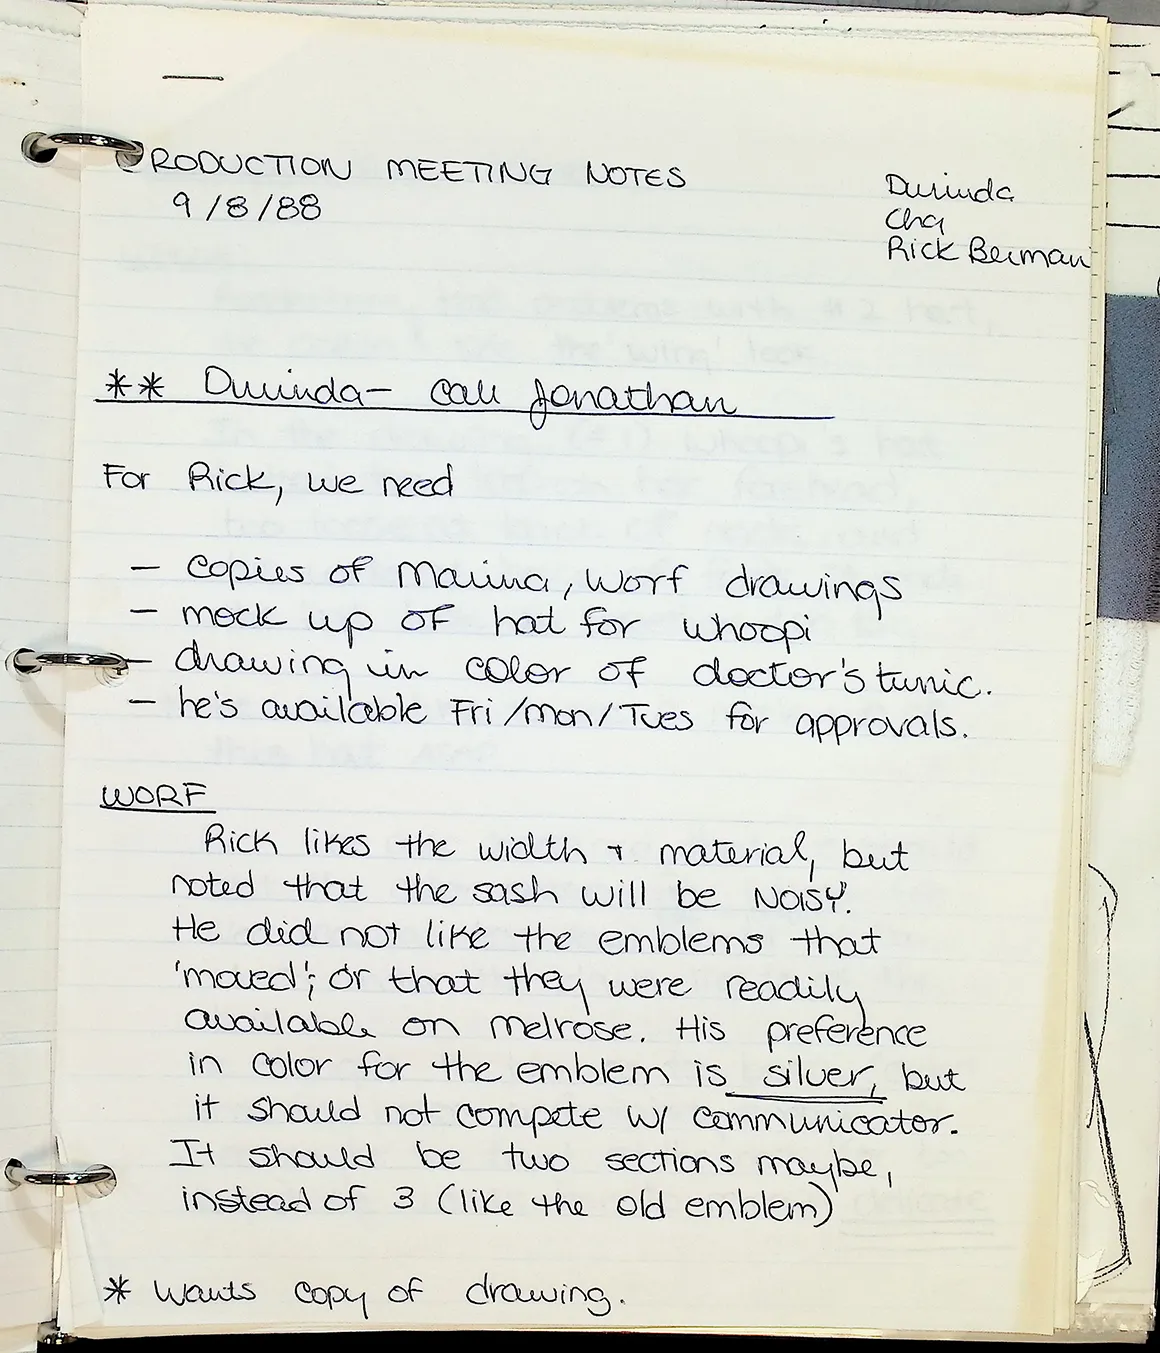 PRODUCTION MEETING NOTES
9/8/88
Durinda
Cha
Rick Berman
** Durinda- call Jonathan
For Rick, we need
- copies of Marina, Worf drawings
- mock up of hat for whoopi
- drawing in color of doctor's tunic.
- he's available Fri/mon/Tues for approvals.
WORF
Rick likes the width + material, but
noted that the sash will be NOISY.
He did not like the emblems that
'moved'; or that they were readily
available on melrose. His preference
in color for the emblem is silver, but
it should not compete w/ communicator.
It should be two sections maybe,
instead of 3 (like the old emblem)
* wants copy of drawing.